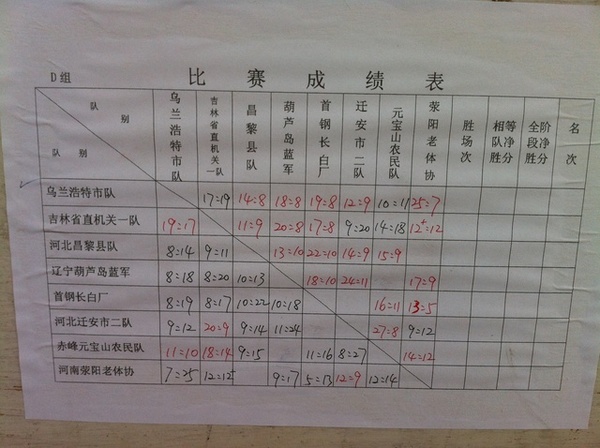 D组 比赛成绩表
队别 乌兰浩特市队 吉林省直机关一队 昌黎县队 葫芦岛蓝军 首钢长白厂 迁安市二队 元宝山农民队 荥阳老体协 胜场次 相等队净胜分 全阶段净胜分 名次
队别
乌兰浩特市队 17=19 14=8 18=8 19=8 12=9 10=11 25=7
吉林省直机关一队 19=17 11=9 20=8 17=8 9=20 14=18 12+=12
河北昌黎县队 8=14 9=11 13=10 22=10 14=9 15=9
辽宁葫芦岛蓝军 8=18 8=20 10=13 18=10 24=11 17=9
首钢长白厂 8=19 8=17 10=22 10=18 16=11 13=5
河北迁安市二队 9=12 20=9 9=14 11=24 27=8 9=12
赤峰元宝山农民队 11=10 18=14 9=15 11=16 8=27 14=12
河南荥阳老体协 7=25 12=12+ 9=17 5=13 12=9 12=14